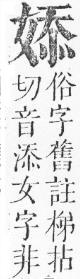 婖
俗字舊註梯拈
切音添女字非